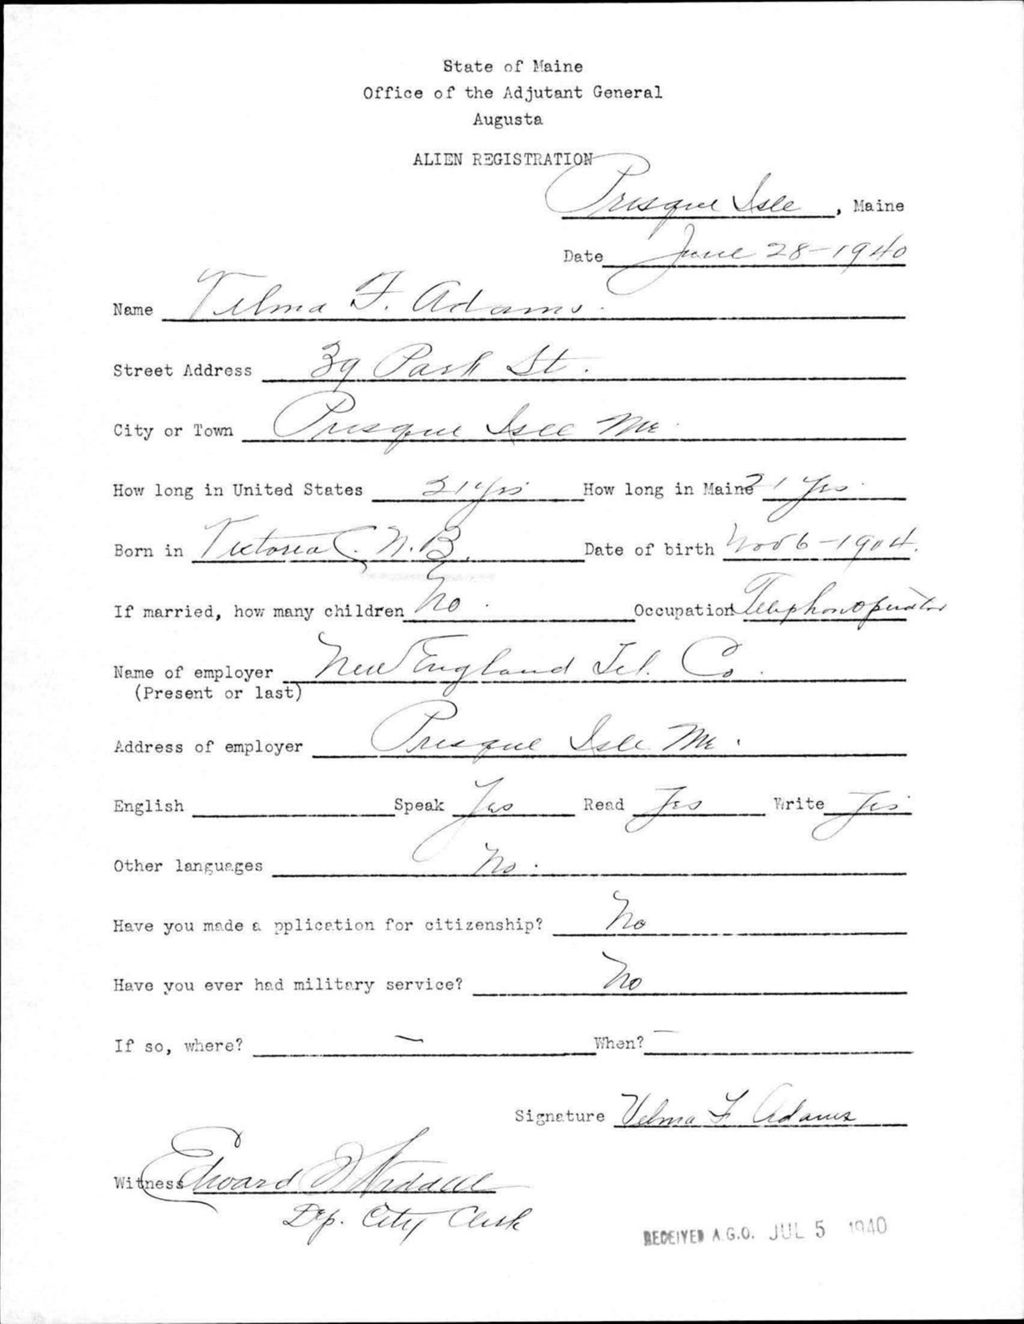 State of Maine
Office of the Adjutant General
Augusta
ALIEN REGISTRATION
Presque Isle, Maine
Date June 28-1940
Name Velma F. Adams.
Street Address 39 Park St.
City or Town Presque Isle Me.
How long in United States 21 yrs How long in Maine 21 Yrs.
Born in Victoria C. N.B. Date of birth Nov 6-1904.
If married, how many children No. Occupation Telephonoperator
Name of employer New England Tel. Co.
(Present or last)
Address of employer Presque Isle Me.
English Speak Yes Read Yes Write Yes
Other languages No.
Have you made a pplication for citizenship? No
Have you ever had military service? No
If so, where? - When? -
Signature Velma F Adams
Witness Edward
Dep. City Clerk
RECEIVED A.G.O. JUL 5 1940